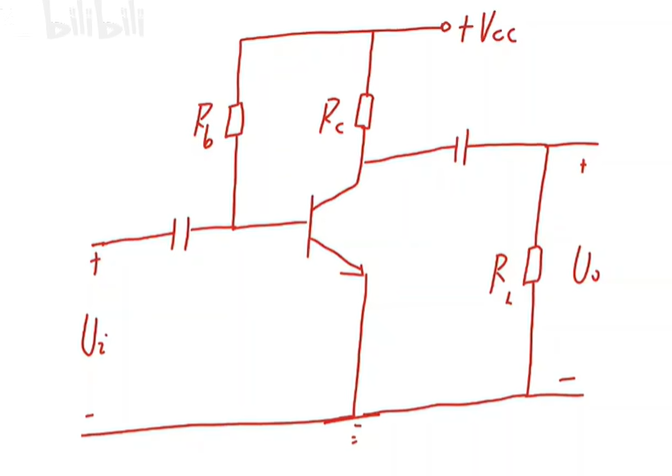 bilibili
+Vcc
Rb
Rc
+
+
RL
Uo
Ui
-
-